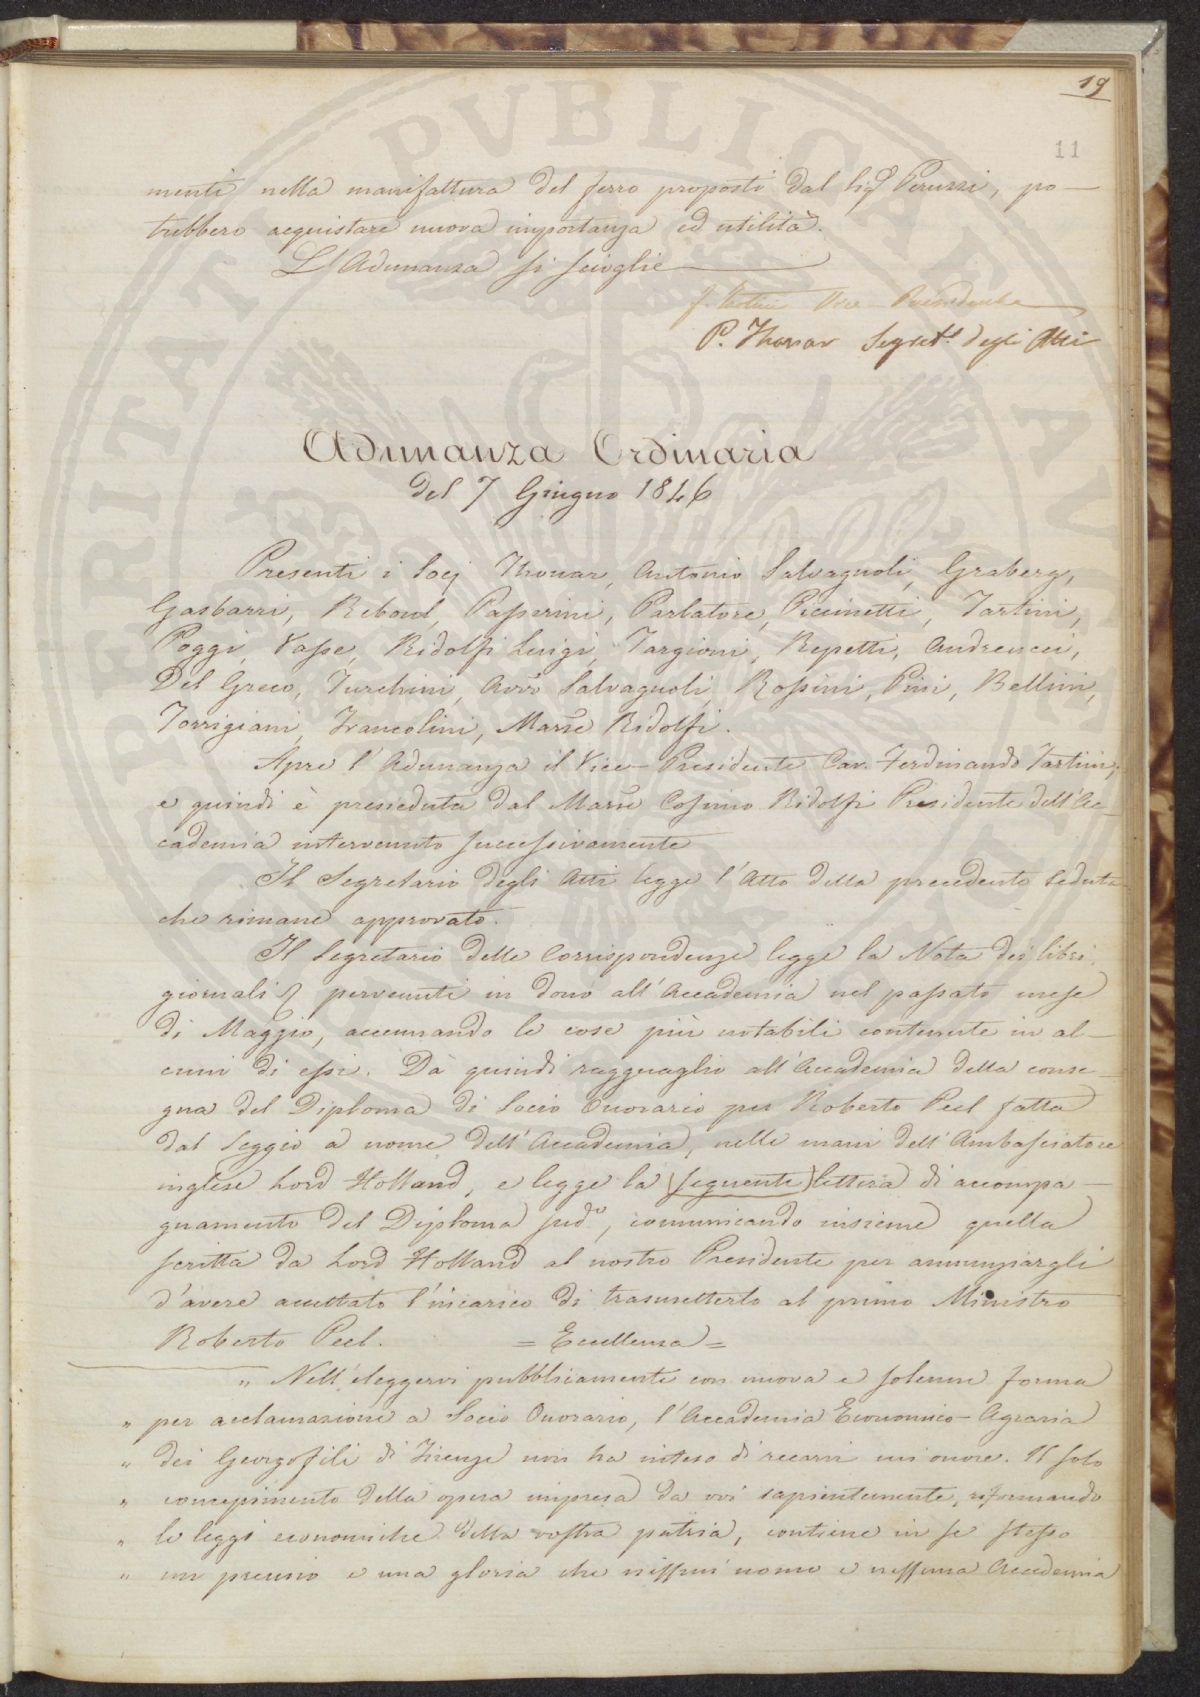 19
11
menti nella manifattura del ferro proposti dal Sig.r Peruzzi, po-
trebbero acquistare nuova importanza ed utilità.
L'Adunanza si scioglie
F. Tartini Vice Presidente
P. Thouar Segret.o degli Atti
Adunanza Ordinaria
del 7 Giugno 1846
Presenti i Socj Thouar, Antonio Salvagnoli, Graberg,
Gasbarri, Reboul, Passerini, Parlatore, Piccinetti, Tartini,
Poggi, Vasse, Ridolfi Luigi, Targioni, Repetti, Andreucci,
Del Greco, Turchini, Avvo Salvagnoli, Rossini, Pini, Bellini,
Torrigiani, Francolini, Marse Ridolfi.
Apre l'Adunanza il Vice-Presidente Cav. Ferdinando Tartini;
e quindi è presieduta dal Marse Cosimo Ridolfi Presidente dell'Ac-
cademia intervenuto successivamente
Il Segretario degli Atti legge l'Atto della precedente seduta
che rimane approvato.
Il Segretario delle Corrispondenze legge la Nota dei libri,
giornali pervenuti in dono all'Accademia nel passato mese
di Maggio, accennando le cose più notabili contenute in al-
cuni di essi. Dà quindi ragguaglio all'Accademia della conse-
gna del Diploma di Socio Onorario per Roberto Peel fatta
dal Seggio a nome dell'Accademia, nelle mani dell'Ambasciatore
inglese Lord Holland, e legge la (seguente) lettera di accompa-
gnamento del Diploma sud.o, comunicando insieme quella
scritta da Lord Holland al nostro Presidente per annunziargli
d'avere accettato l'incarico di trasmetterlo al primo Ministro
Roberto Peel. = Eccellenza =
„ Nell'eleggervi pubblicamente con nuova e solenne forma
„ per acclamazione a Socio Onorario, l'Accademia Economico-Agraria
„ dei Georgofili di Firenze non ha inteso di recarvi un onore. Il solo
„ concepimento della opera impresa da voi sapientemente, riformando
„ le leggi economiche della vostra patria, contiene in se stesso
„ un premio e una gloria che nissun uomo e nessuna Accademia